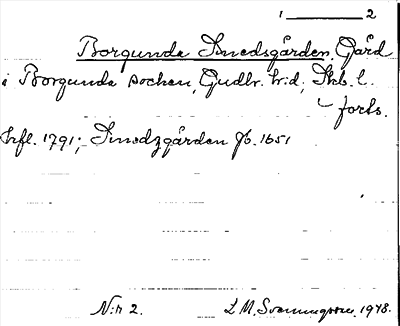 1 2
Borgunda Smedsgården, Gård
i Borgunda socken, Gudhr. h:d, Skb. l.
forts.
hfl. 1791; Smedzgården Jb. 1651
N:r 2.
L M. Svenningsson, 1948.